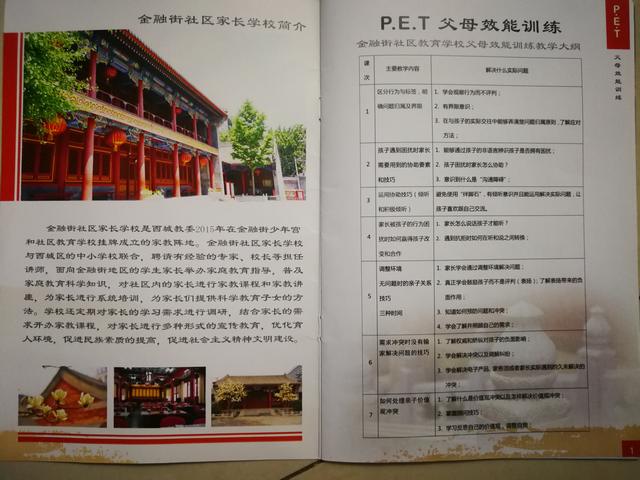 金融街社区家长学校简介
金融街社区家长学校是西城教委2015年在金融街少年宫
和社区教育学校挂牌成立的家教阵地。金融街社区家长学校
与西城区的中小学校联合，聘请有经验的专家、校长等担任
讲师，面向金融街地区的学生家长举办家庭教育指导，普及
家庭教育科学知识，对社区内的家长进行家教课程和家教讲
座，为家长进行系统培训，为家长们提供科学教育子女的方
法。学校还定期对家长的学习需求进行调研，结合家长的需
求开办家教课程，对家长进行多种形式的宣传教育，优化育
人环境，促进民族素质的提高，促进社会主义精神文明建设。
P.E.T 父母效能训练
金融街社区教育学校父母效能训练教学大纲
课次
主要教学内容
解决什么实际问题
1
区分行为与标签，明
确问题归属及界限
1. 学会观察行为而不评判；
2. 有界限意识；
3. 在与孩子的实际交往中能够弄清楚问题归属原则，了解应对
方法；
2
孩子遇到困扰时家长
需要用到的协助要素
和技巧
1. 能够通过孩子的非语言辨识孩子是否拥有困扰；
2. 孩子困扰时家长怎么协助？
3. 意识到什么是“沟通障碍”；
3
运用协助技巧（倾听
和积极倾听）
避免使用“绊脚石”，有倾听意识并且能运用解决实际问题，让
孩子喜欢跟自己交流。
4
家长被孩子的行为困
扰时如何赢得孩子改
变和合作
1. 家长怎么说话孩子才能听？
2. 遇到抗拒时如何在听和说之间转换；
5
调整环境
无问题时的亲子关系
技巧
三种时间
1. 家长学会通过调整环境解决问题；
2. 真正学会鼓励孩子而不是评判（表扬）；了解表扬带来的负
面作用；
3. 知道如何预防问题和冲突；
4. 学会了解并照顾自己的需求；
6
需求冲突时没有输
家解决问题的技巧
1. 了解权威和娇纵对孩子的负面影响；
2. 学会解决冲突以及调解纠纷；
3. 学会解决电子产品、家务活或者家长实际遇到的久未解决的
冲突；
7
如何处理亲子价值
观冲突
1. 了解什么是价值观冲突以及怎样解决价值观冲突；
2. 掌握面质技巧；
3. 学习反思自己的价值观，调整自我；
P.E.T
父母效能训练
1